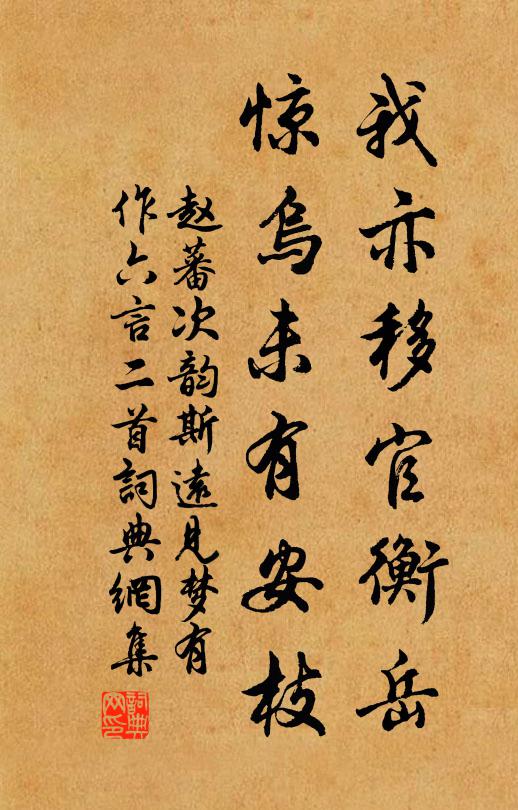 我亦移官衡岳
惊乌未有安枝
赵蕃次韵斯遠见梦有
作六言二首詞典網集
詞典网印